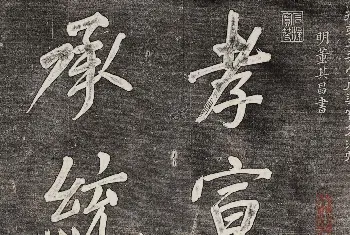 明董其昌書
孝宣
承統